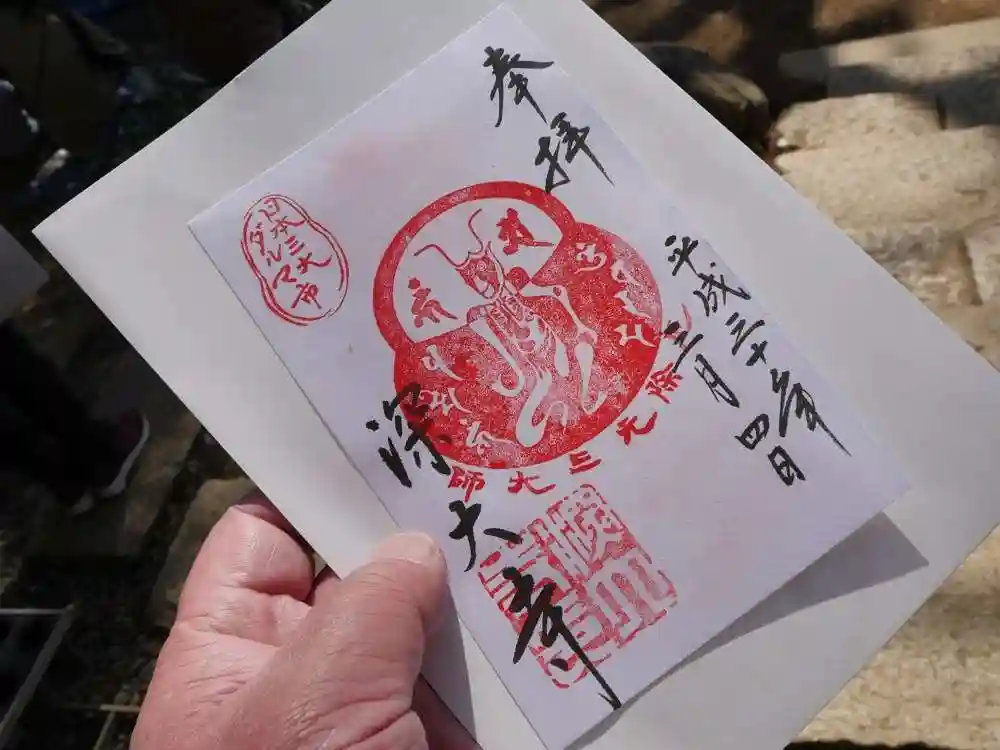 奉拝
平成三十年
三月四日
除元三大師
深大寺
日本三大
ダルマ市